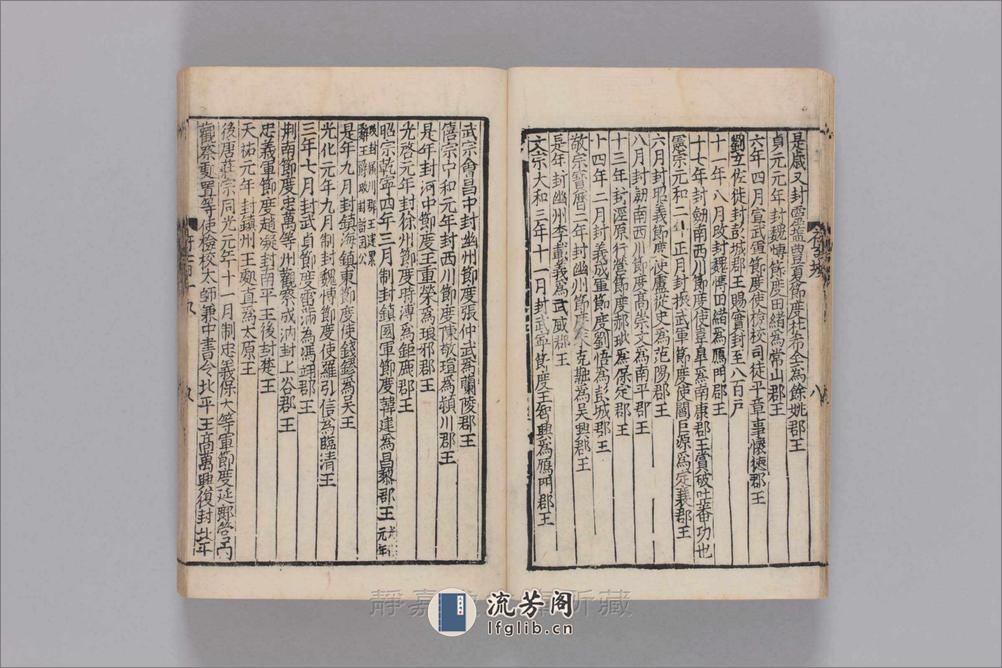 是歲又封靈塩豐夏節度杜希全為餘姚郡王
貞元元年封魏愽節度田緒為常山郡王
六年四月宣武軍節度使檢校司徒平章事懷德郡王
劉玄佐徙封彭城郡王賜實封至八百戶
十一年八月改封魏愽田緒為鴈門郡王
十七年封劒南西川節度使韋臯為南康郡王賞破吐蕃功也
憲宗元和二年正月封振武軍節度使閻巨源為定襄郡王
六月封昭義節度使盧從史為范陽郡王
八月封劒南西川節度高崇文為南平郡王
十三年封涇原行營節度使郝玼為保定郡王
十四年二月封義成軍節度劉悟為彭城郡王
敬宗寶曆二年封幽州節度朱克融為吳興郡王
是年封幽州李載義為武威郡王
文宗大和三年十一月封武寧節度王智興為鴈門郡王
八
武宗會昌中封幽州節度張仲武為蘭陵郡王
僖宗中和元年封西川節度陳敬瑄為潁川郡王
是年封河中節度王重榮為琅邪郡王
光啓元年封徐州節度時溥為鉅鹿郡王
昭宗乾寧四年三月制封鎮國軍節度韓建為昌黎郡王
元年
是年九月封鎮海鎮東節度使錢鏐為吳王
光化元年九月制封魏愽節度使羅引信為臨清王
三年七月封武貞節度雷滿為馮翊郡王
荆南節度忠萬等州觀察成汭封上谷郡王
忠義軍節度趙凝封南平王後封楚王
天祐元年封鎮州王處直為太原王
後唐莊宗同光元年十一月制忠義保大等軍節度延鄜管內
觀察處置等使檢校太師兼中書令北平王高萬興復封北平
靜嘉 所藏
流芳阁
lfglib.cn